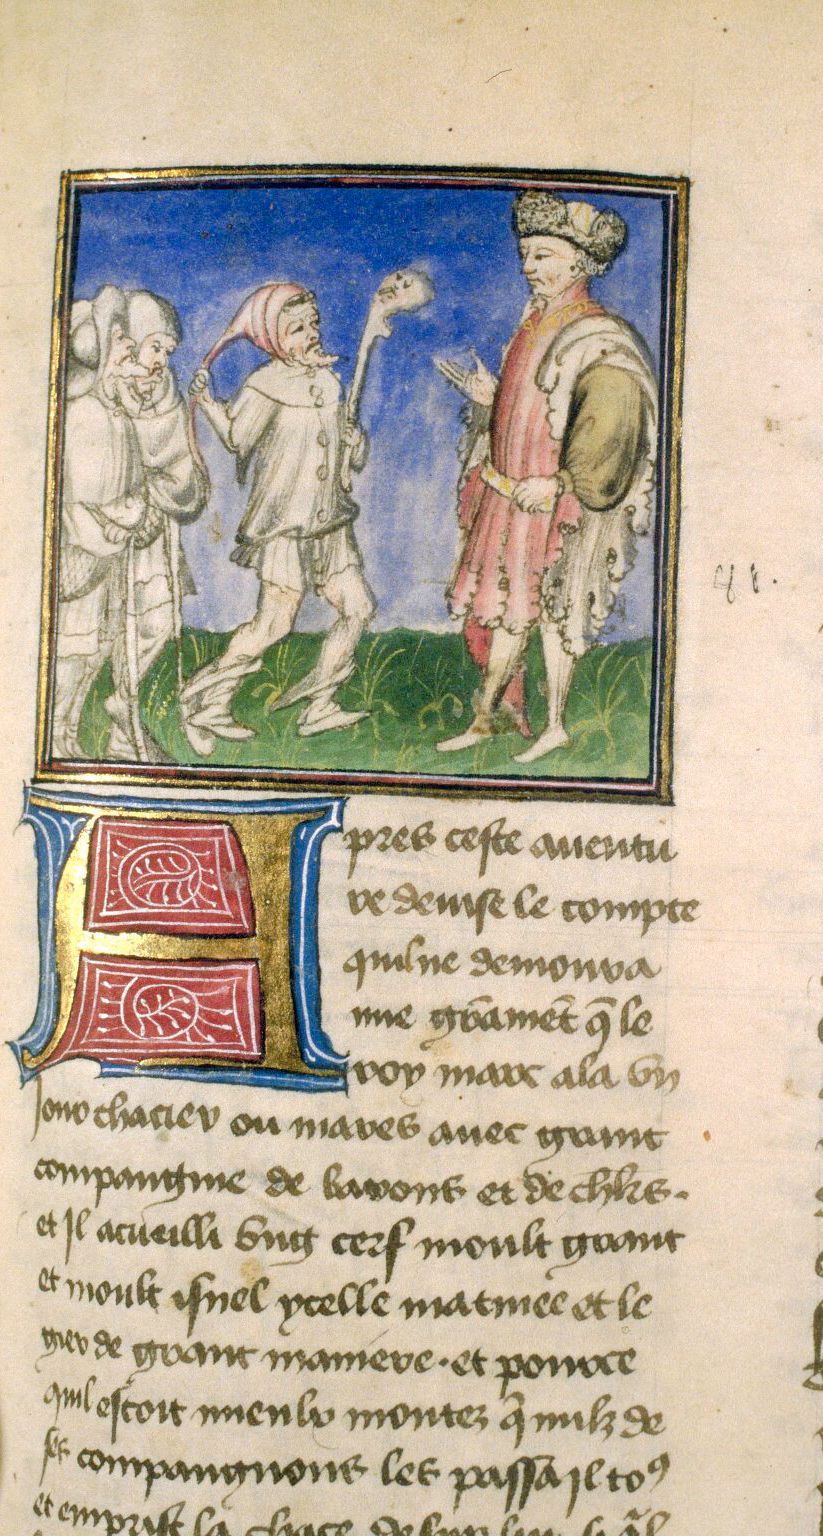 Apres ceste auentu
re deuise le compte
quil ne demoura
mie grāmēt q̄ le
roy marc ala vn
iour chacier ou mares auec grant
compaignie de barons et de chlrs.
et il acueilli vng cerf moult grant
et moult isnel ycelle matinee et le
gier de grant maniere. et pource
quil estoit mieulx montez q̄ nulz de
ses compaignons les passa il toꝰ
et emprist la chace